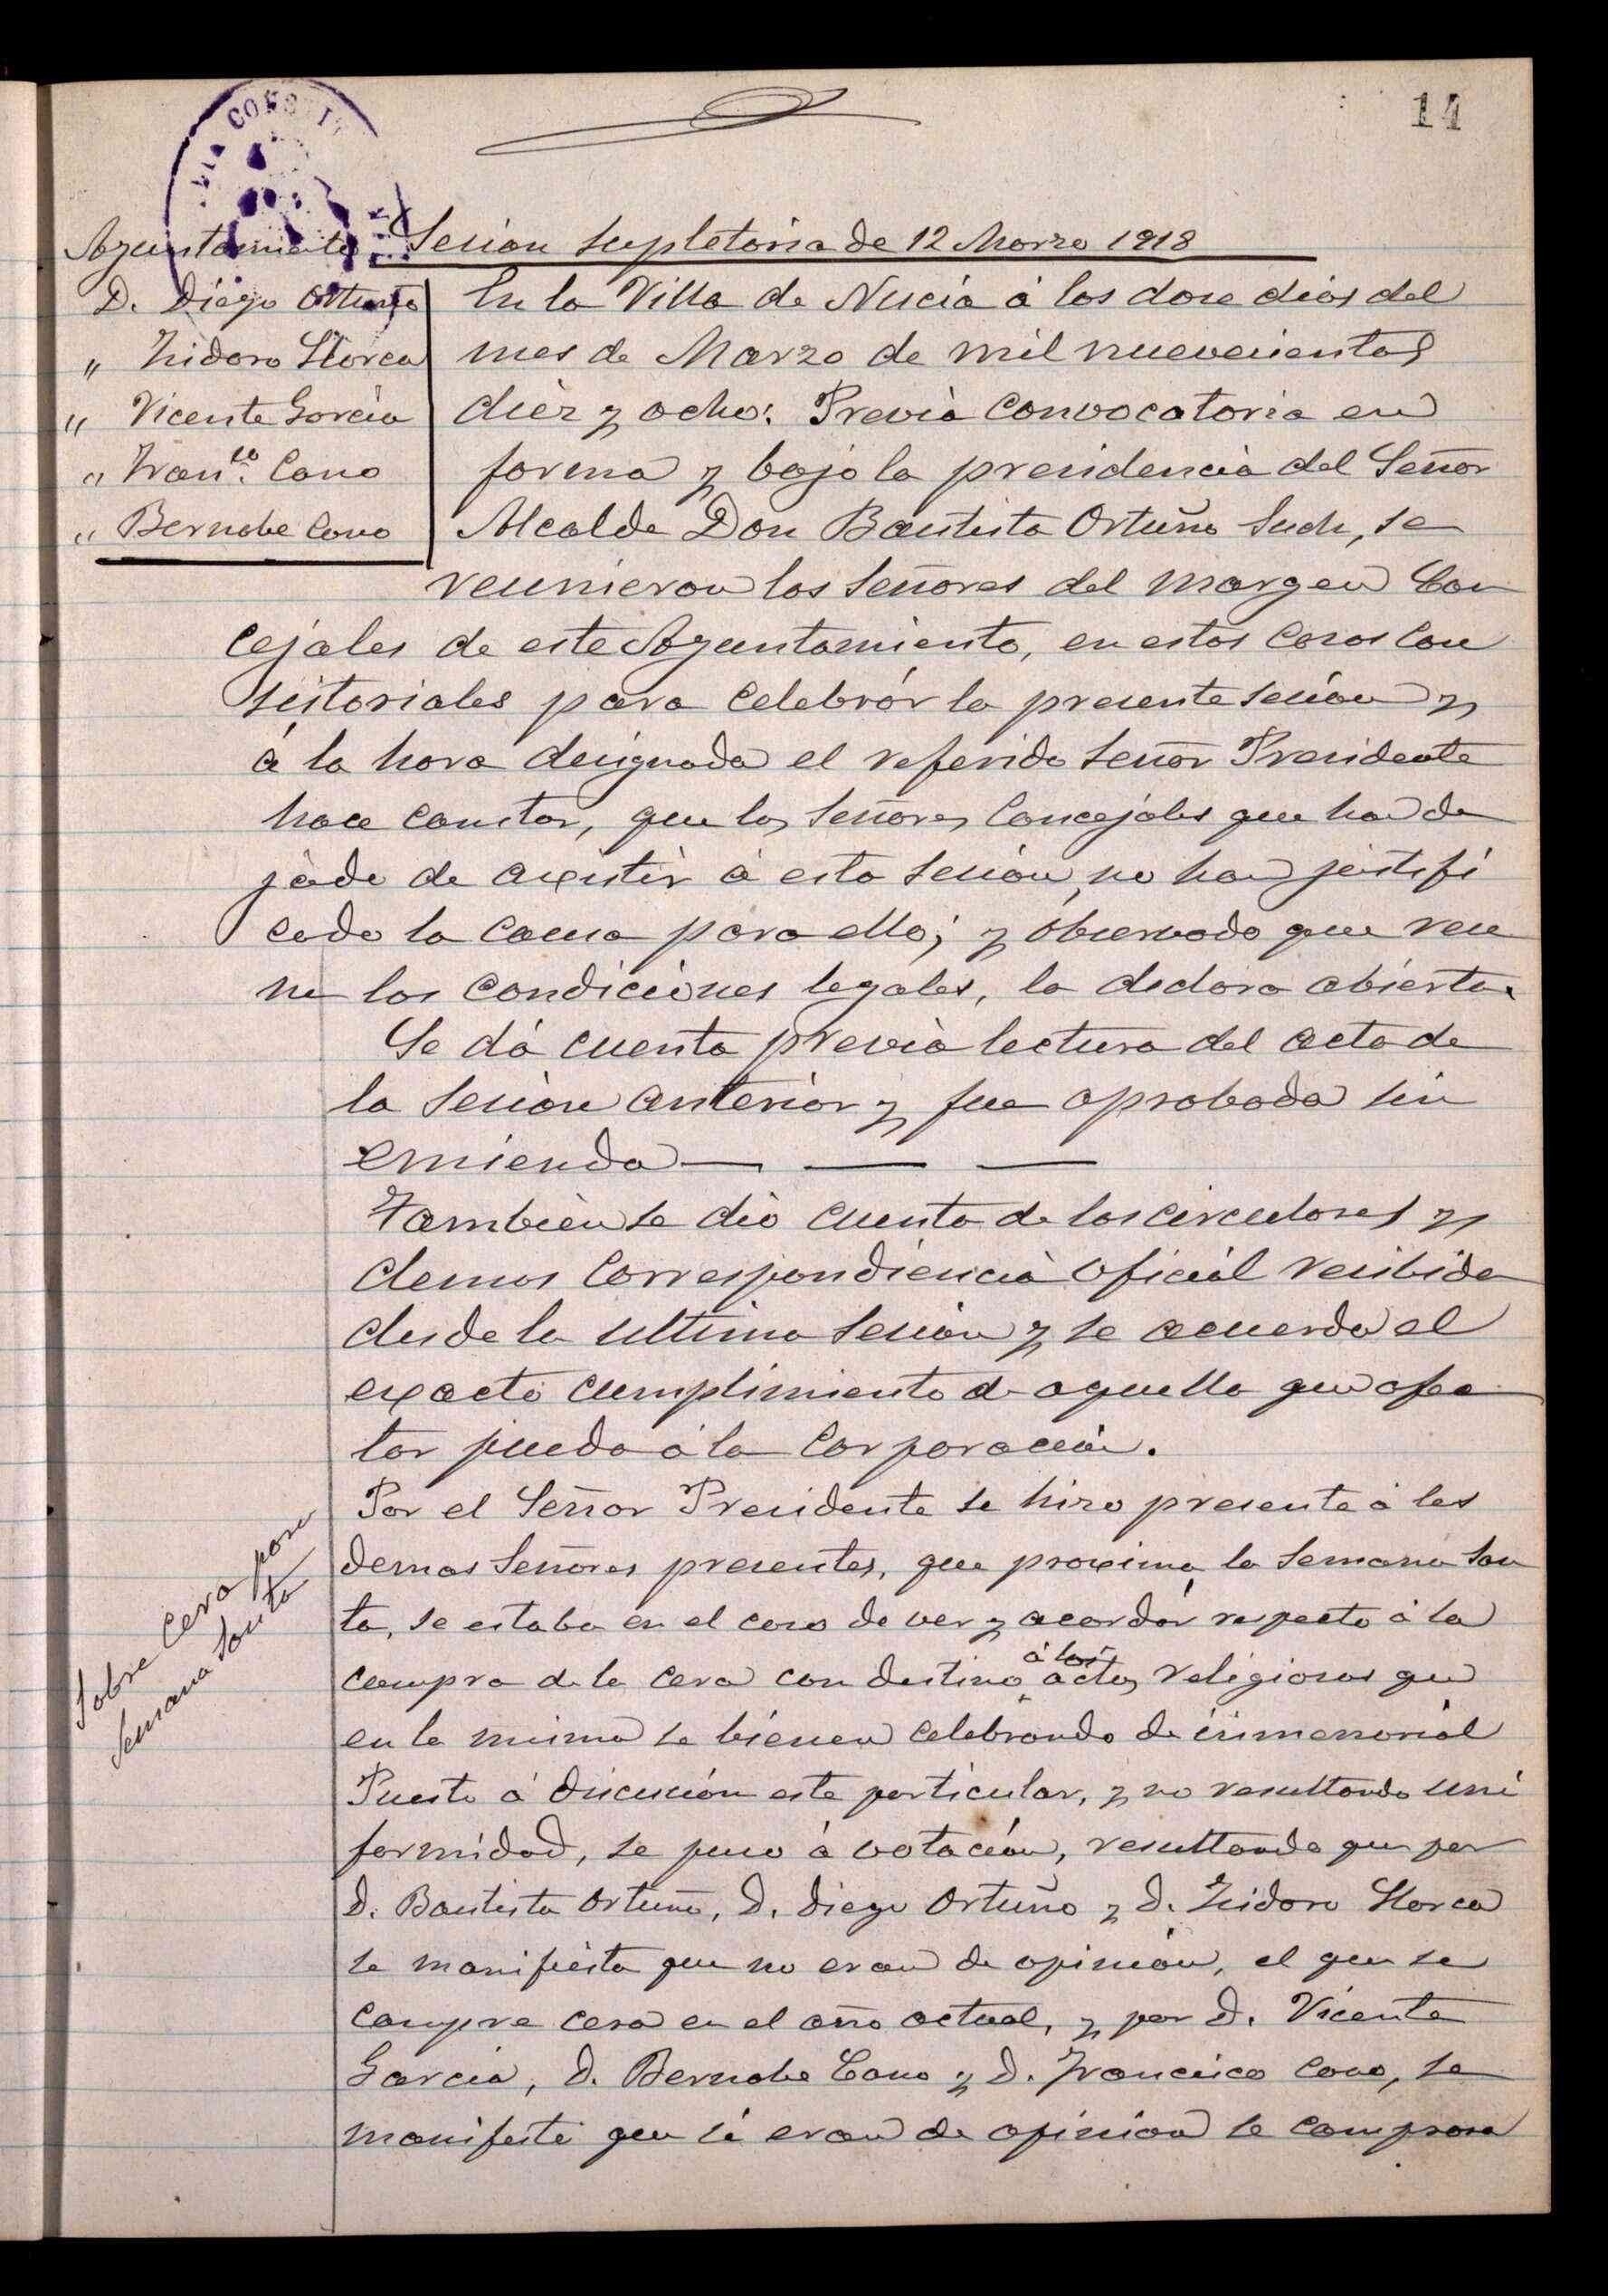 14
Ayuntamiento
D. Diego Ortuño
" Isidoro Llorca
" Vicente Garcia
" Fran.co Cano
" Bernabe Cano
Sesion supletoria de 12 Marzo 1918
En la Villa de Nucia á los doce dias del
mes de Marzo de mil nuevecientos
diéz y ocho: Previa convocatoria en
forma y bajo la presidencia del Señor
Alcalde Don Bautista Ortuño Such, se
reunieron los Señores del margen Con
cejales de este Ayuntamiento, en estas Casas Con
sistoriales para celebrár la presente sesión y
á la hora designada el referido Señor Presidente
hace constar, que los Señores Concejales que han de
jado de axistir á esta sesión, no han justifi
cado la causa para ello; y observado que reu
ne las condiciones legales, la declara abierta.
Se dá cuenta previa lectura del acta de
la Sesión anteriór y fue aprobada sin
emienda
También se dió cuenta de las circulares y
demas Correspondiencia oficiál recibida
desde la ultima Sesión y se acuerda el
exacto cumplimiento de aquella que afec
tar pueda á la Corporación.
Por el Señor Presidente se hizo presente á los
demas Señores presentes, que proxima la Semana San
ta, se estaba en el caso de ver y acordár respecto á la
compra de la cera con destino á los actos religiosos que
en la misma se bienen celebrando de inmemoriál
Puesto á discusión este particular, y no resultando uni
formidad, se puso á votación, resultando que por
D. Bautista Ortuño, D. Diego Ortuño y D. Isidoro Llorca
se manifiesta que no eran de opinión, el que se
compre cera en el año actual, y por D. Vicente
Garcia, D. Bernabe Cano y D. Francisco Cano, se
manifesta que sí eran de opinión se comprara
Sobre Cera para
Semana Santa